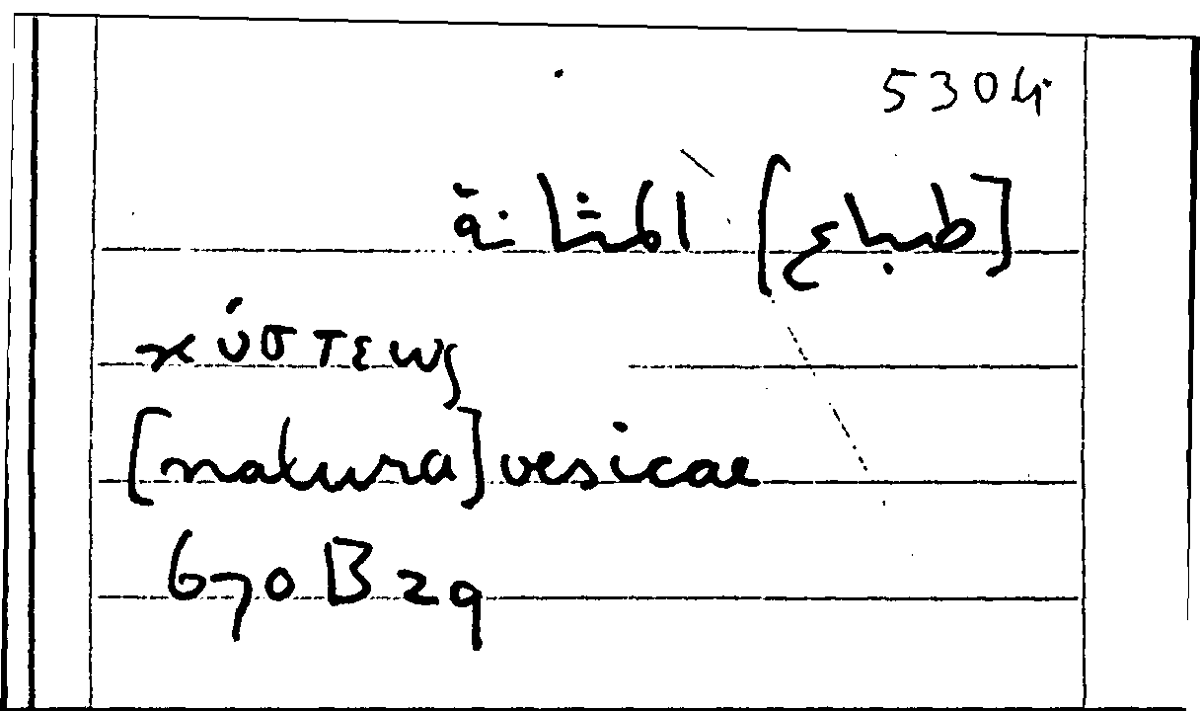 5304
[طباع] المثانة
κύστεως
[natura] vesicae
670 B 29